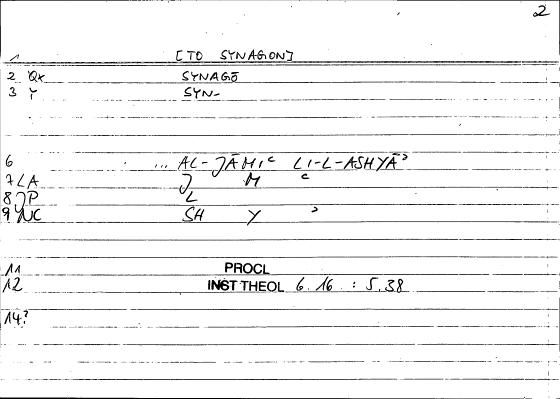 2
1 [TO SYNAGON]
2 Qx SYNAGŌ
3 Y SYN-
6 ... AL-JĀMIᶜ LI-L-ASHYĀʾ
7 LA J M ᶜ
8 JP L
9 NC SH Y ʾ
11 PROCL
12 INST THEOL 6.16 : 5.38
14?